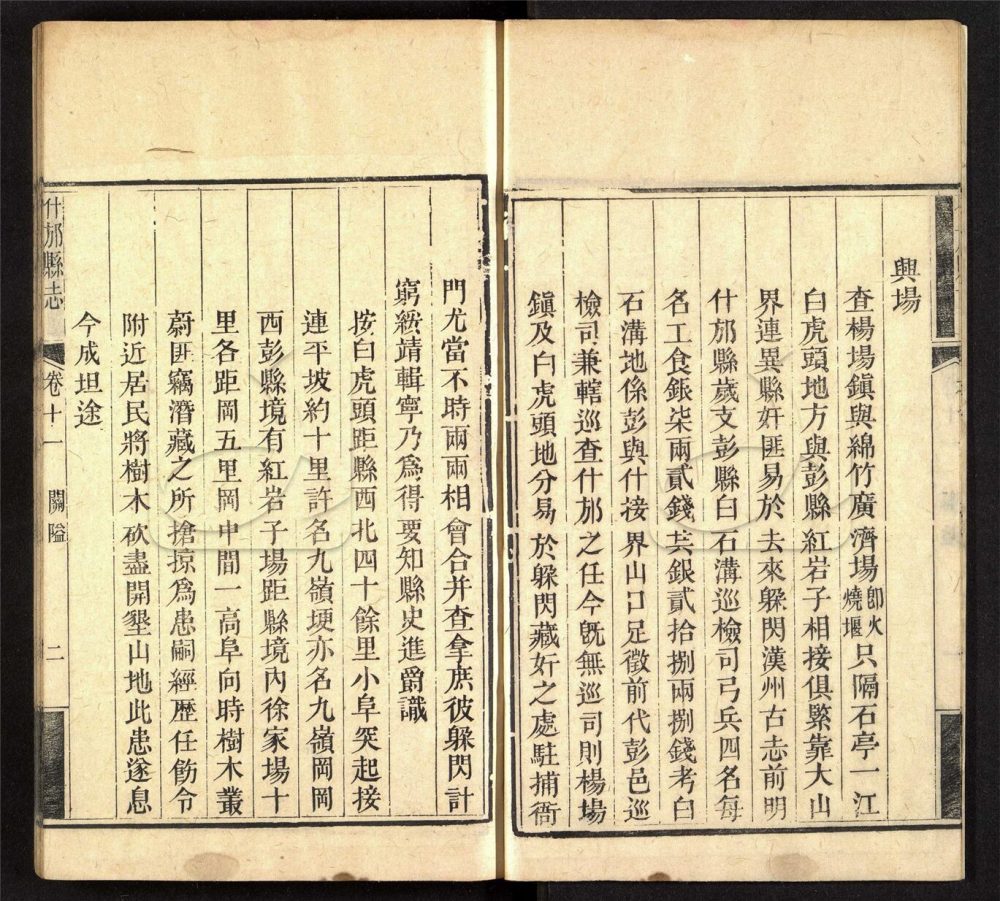 興場
查楊場鎮與綿竹廣濟場卽火燒堰只隔石亭一江
白虎頭地方與彭縣紅岩子相接俱緊靠大山
界連異縣奸匪易於去來躲閃漢州古志前明
什邡縣歲支彭縣白石溝巡檢司弓兵四名每
名工食銀柒兩貳錢共銀貳拾捌兩捌錢考白
石溝地係彭與什接界山口足徵前代彭邑巡
檢司兼轄巡查什邡之任今旣無巡司則楊場
鎮及白虎頭地分易於躲閃藏奸之處駐捕衙
門尤當不時兩兩相會合并查拿庶彼躲閃計
窮綏靖輯寧乃爲得要知縣史進爵識
按白虎頭距縣西北四十餘里小阜突起接
連平坡約十里許名九嶺埂亦名九嶺岡岡
西彭縣境有紅岩子場距縣境內徐家場十
里各距岡五里岡中間一高阜向時樹木叢
蔚匪竊潛藏之所搶掠爲患嗣經歷任飭令
附近居民將樹木砍盡開墾山地此患遂息
今成坦途
什邡縣志
卷十一
關隘
二